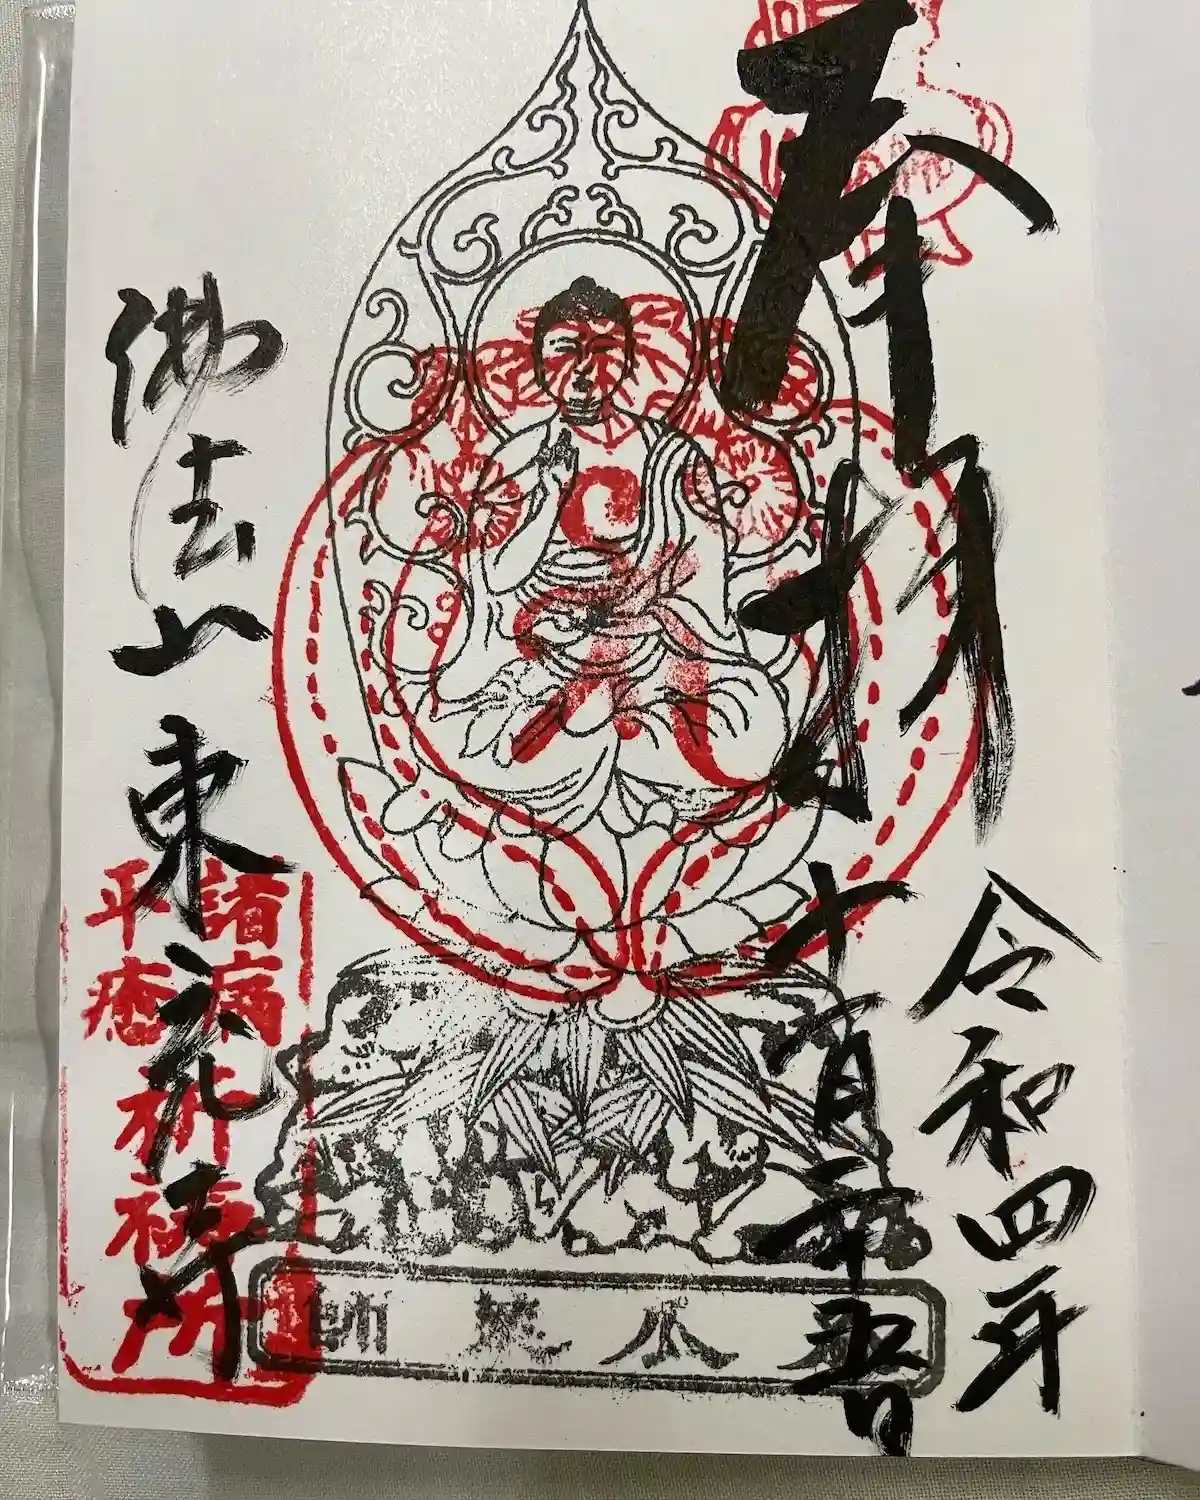 奉拝
令和四年
十一月二十五日
佛法山東光寺
諸病
平癒
祈祷所
瓜薬師